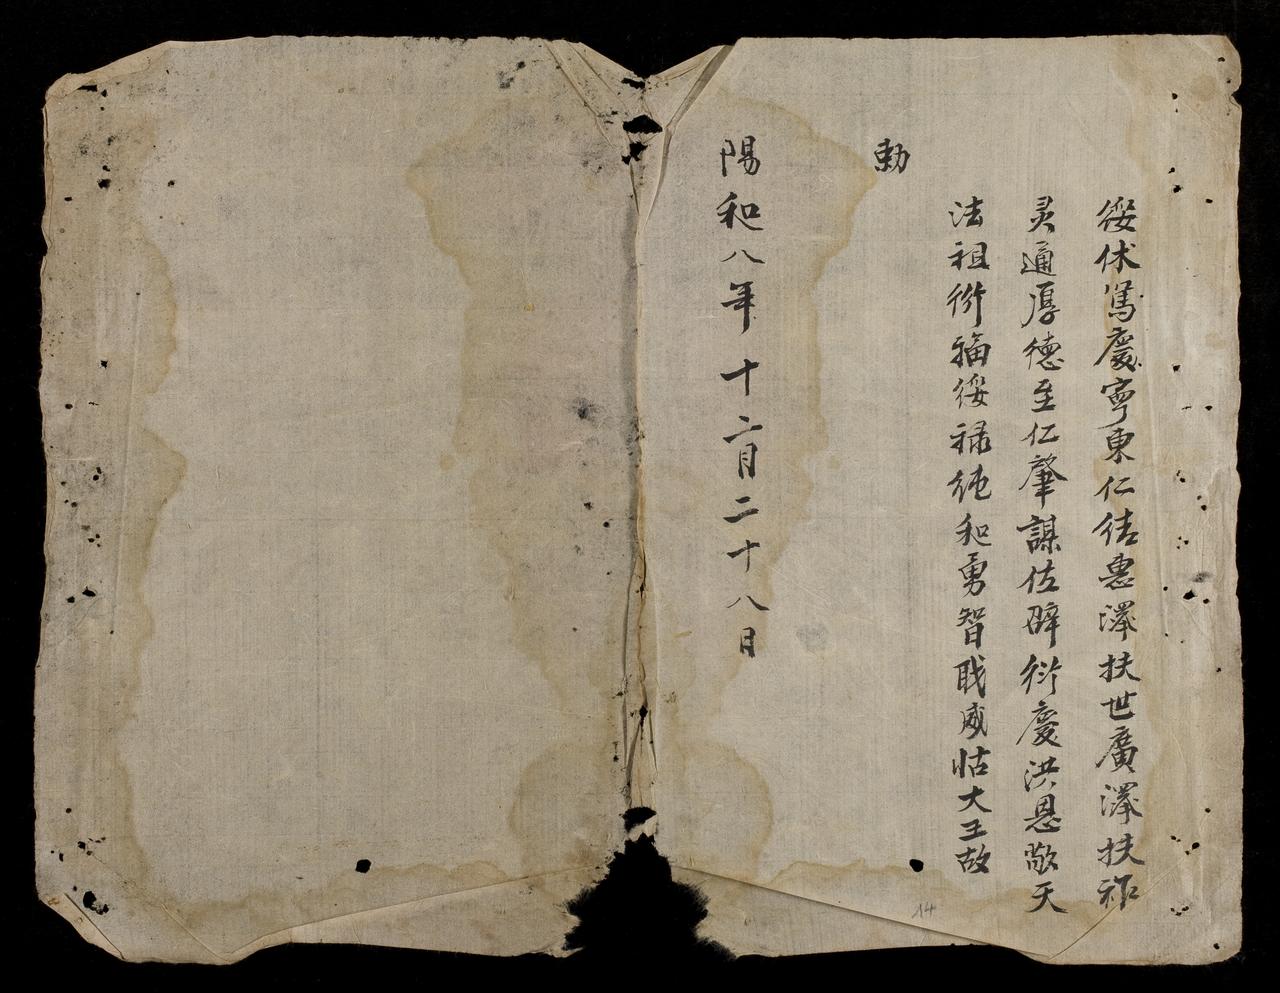 綏休篤慶寧東仁德惠澤扶世廣澤扶祚
灵通厚德至仁肇謀佐辟衍慶洪恩敵天
法祖衍福綏禄純和勇智戢威怙大王故
勅
陽和八年十六月二十八日
14